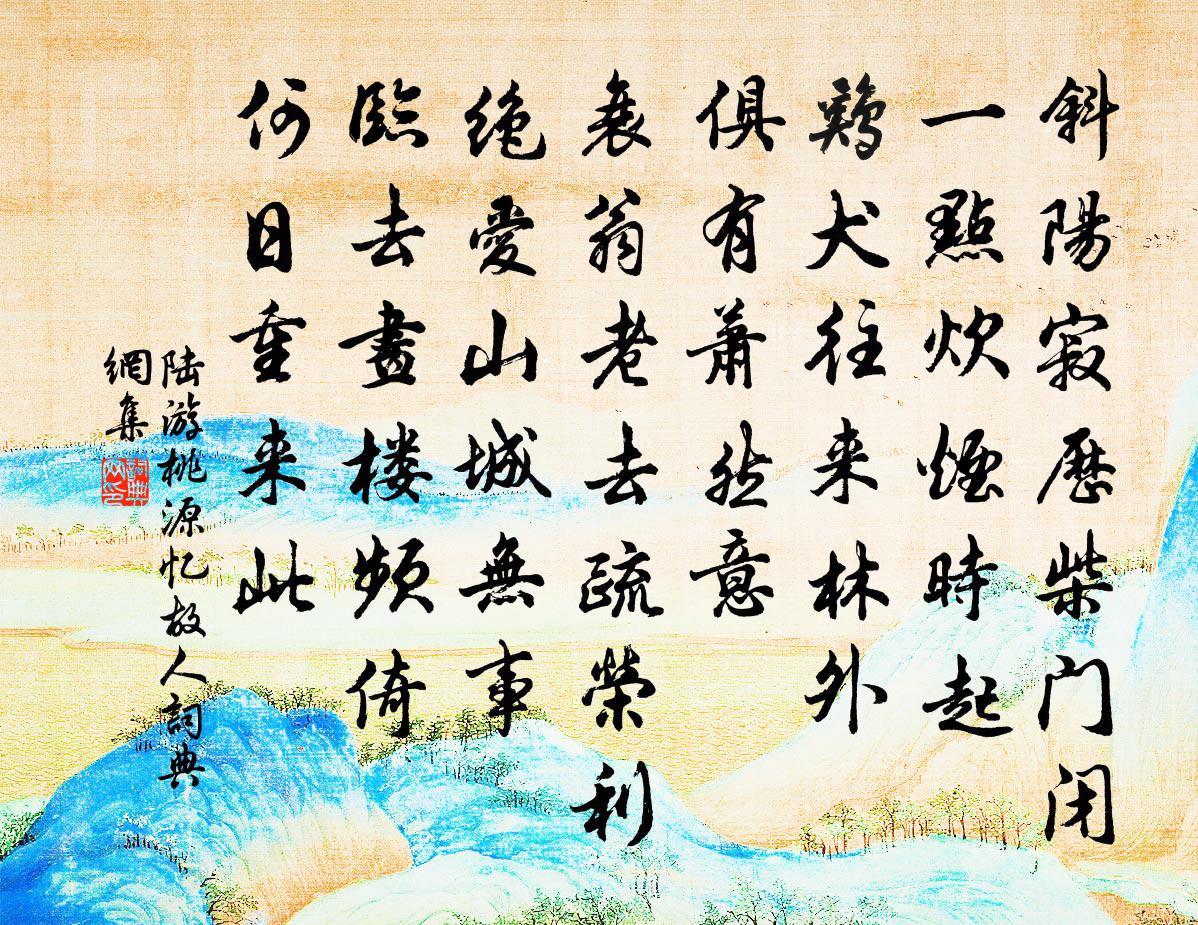 斜陽寂歷柴门闭
一點炊煙時起
鷄犬往来林外
俱有蕭然意
衰翁老去疏榮利
绝愛山城無事
臨去畫楼頻倚
何日重来此
陆游桃源忆故人詞典
網集
詞典